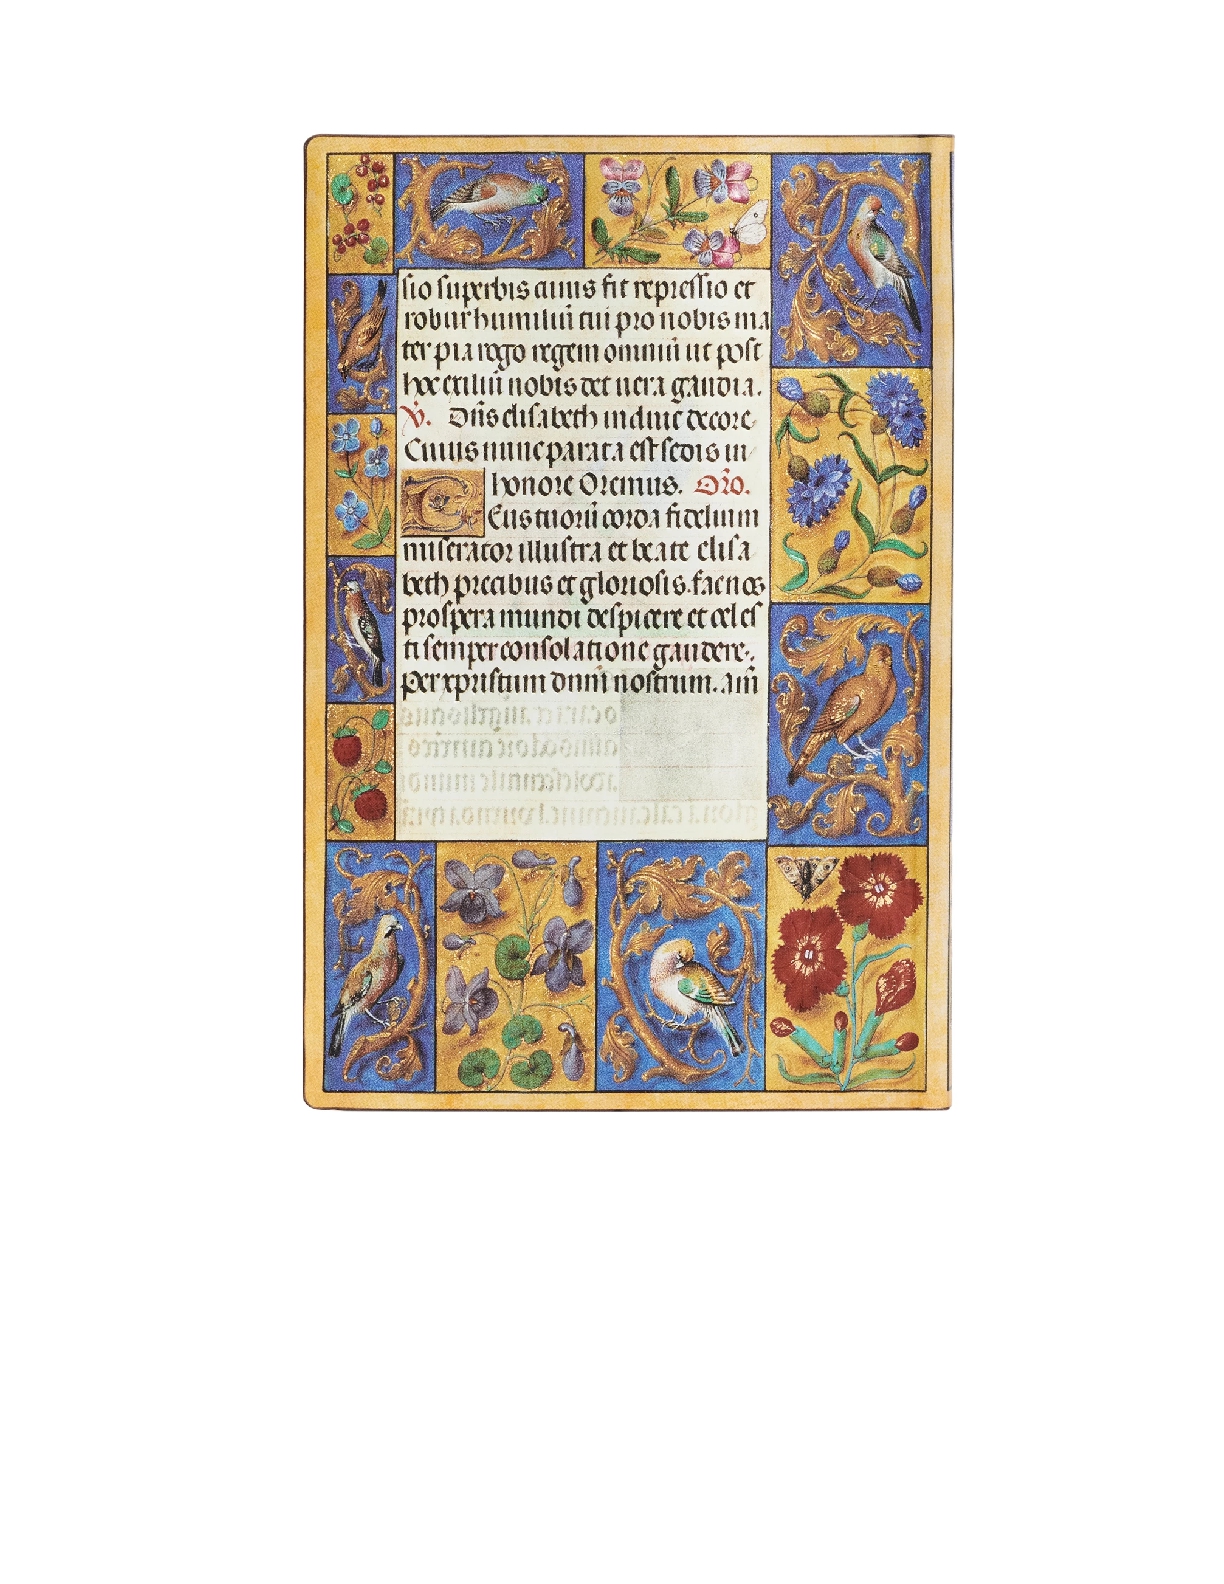 sio superbis cuius fit repressio et
robur humiliū tui pro nobis ma
ter pia rogo regem omniū ut post
hoc exiliū nobis det uera gaudia.
V̄. Dn̄s elisabeth induit decore.
Cuius nunc parata est sedis in
honore Oremus. Or̄o.
Deus tuorū corda fidelium
miserator illustra et beate elisa
beth precibus et gloriosis. fac nos
prospera mundi despicere et celes
ti semper consolatione gaudere.
per xpristum dnm̄ nostrum. am̄